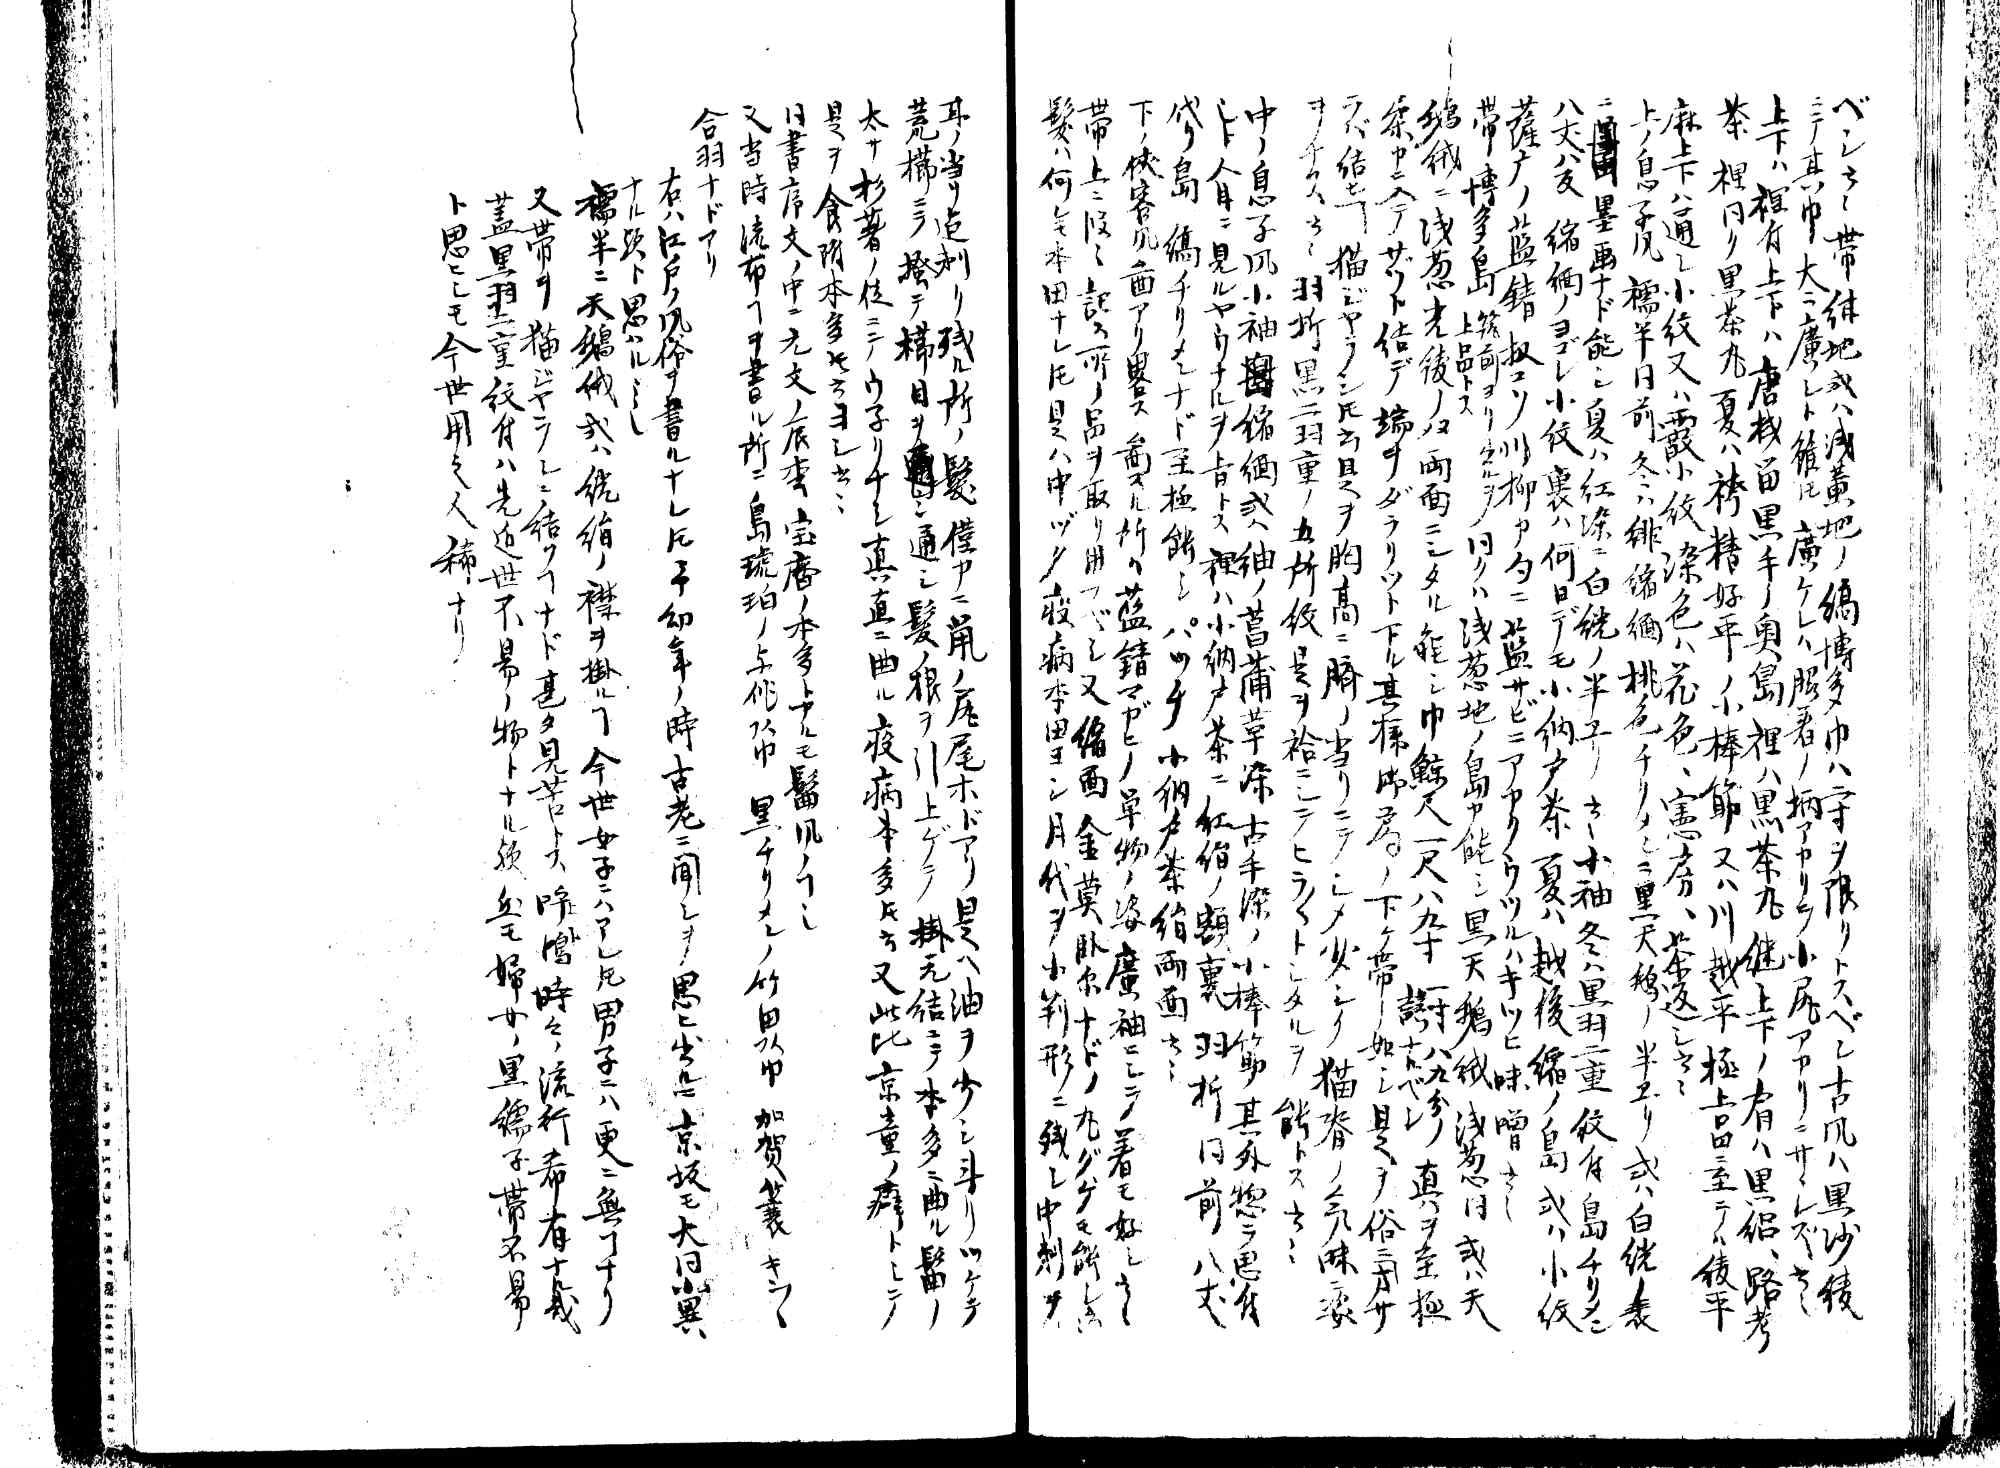 ベシ云々帯紺地或ハ浅黄地ノ縞博多巾ハ二寸ヲ限リトスベシ古風ハ黒沙綾
ニテ其巾大ニ廣シト雖ドモ廣ケレハ脇差ノ柄アカリテ小尻アカリニサヽレズ云々
上下ハ裃付上下ハ唐桟留黒手ノ奥島裡ハ黒茶丸継上下ノ肩ハ黒絽、路考
茶裡同ク黒茶丸夏ハ袴精好平ノ小棒節又ハ川越平極上品ニ至テハ綾平
麻上下ハ通し小紋又ハ霰小紋染色ハ花色、憲房、茶返し云々
上ノ息子風襦半同前冬ハ緋縮緬桃色チリメンニ黒天鵝ノ半ヱリ或ハ白綾ノ表
ニ墨画ナド能シ夏ハ紅染ニ白綾ノ半ヱリ云々小袖冬ハ黒羽二重紋付島チリメン
八丈八反縮緬ノヨゴレ小紋裏ハ何日デモ小納戸茶夏ハ越後縮ノ島或ハ小紋
薩广ノ藍錆扨コソ川柳カ句ニ藍サビニアヤウクウツルハキツヒ味噌云々
帯博多島筑前ヨリ出ルヲ上品トス同クハ浅葱地ノ島カ能シ黒天鵝絨浅葱同或ハ天
鵝絨ニ浅葱光綾ノ如両面ニシタル能シ巾鯨尺一尺八九寸一寸八九分真ヲ至極
柔カニ入テザット結デ端ヲダラリット下ル其様御局ノ下ケ帯ノ如シ是ヲ俗ニ
ラバ結モ猫ジヤラシトモ云是ヲ胸高ニ臍ノ当リニテシメ少シク猫脊ノ気味ニ
ヲナス云々羽折黒二羽重ノ五所紋是ヲ袷ニシテヒラットシタルヲ能トス云々
中ノ息子風小袖縮緬或ハ紬ノ菖蒲革染古手染ノ小棒節其外惣テ思付
シト人目ニ見ルヤウナルヲ上トス裡ハ小納戸茶ニ紅絹ノ額裏羽折同前八丈
代リ島縞チリメンナド至極能シパッチ小納戸茶絹両面云々
下ノ侠客風画アリ略ス画スル所ハ藍錆マガヒノ単物ノ姿廣袖ニシテ着モ好シ云々
帯上ニ段々記ス所ノ品ヲ取リ用フベシ又縮緬金莫臥尓ナドノ丸グケモ能シ云々
髪ハ何レモ本田ナレ𪜈是ハ中ヅク疫病本田ヨシ月代ヲ小判形ニ残シ中剃ヲ
耳ノ当リ迠剃リ残ル所ノ髪僅カニ鼠ノ尾ホドアリ是ヘ油ヲ少シ斗リツケテ
荒櫛ニテ撥テ櫛目ヲ通シ髪ノ根ヲ引上ゲテ掛元結ニテ本多ニ曲ル髷ノ
太サ杉箸ノ位ニシテウ子リナシ真直ニ曲ル疫病本多𪜈云又此比京童ノ癖トシテ
是ヲ食隋本多𪜈云ヨシ云々
同書序文ノ中ニ元文ノ辰松宝暦ノ本多トアルモ髷風ノ
又当時流布ヲ書ル所ニ島琥珀ノ上作火巾黒チリメンノ竹田火巾加賀簑キン
合羽ナドアリ
右ハ江戸ノ風俗ヲ書ルナレ𪜈予幼年ノ時古老ニ聞シヲ思ヒ出ルニ京坂モ大同小異
ナル歟ト思ハルヽ
襦半ニ天鵝絨或ハ綾絹ノ襟ヲ掛ルヿ今世女子ニハアレ𪜈男子ニハ更ニ無ヿナリ
又帯ヲ猫ジヤラシニ結ブヿナド甚タ見苦トス嗚嘑時々ノ流行希有ナル哉
蓋黒羽二重紋付ハ先近世不易ノ物トナル歟尤モ婦女ノ黒繻子帯不易
ト思ヒシモ今世用之人稀ナリ